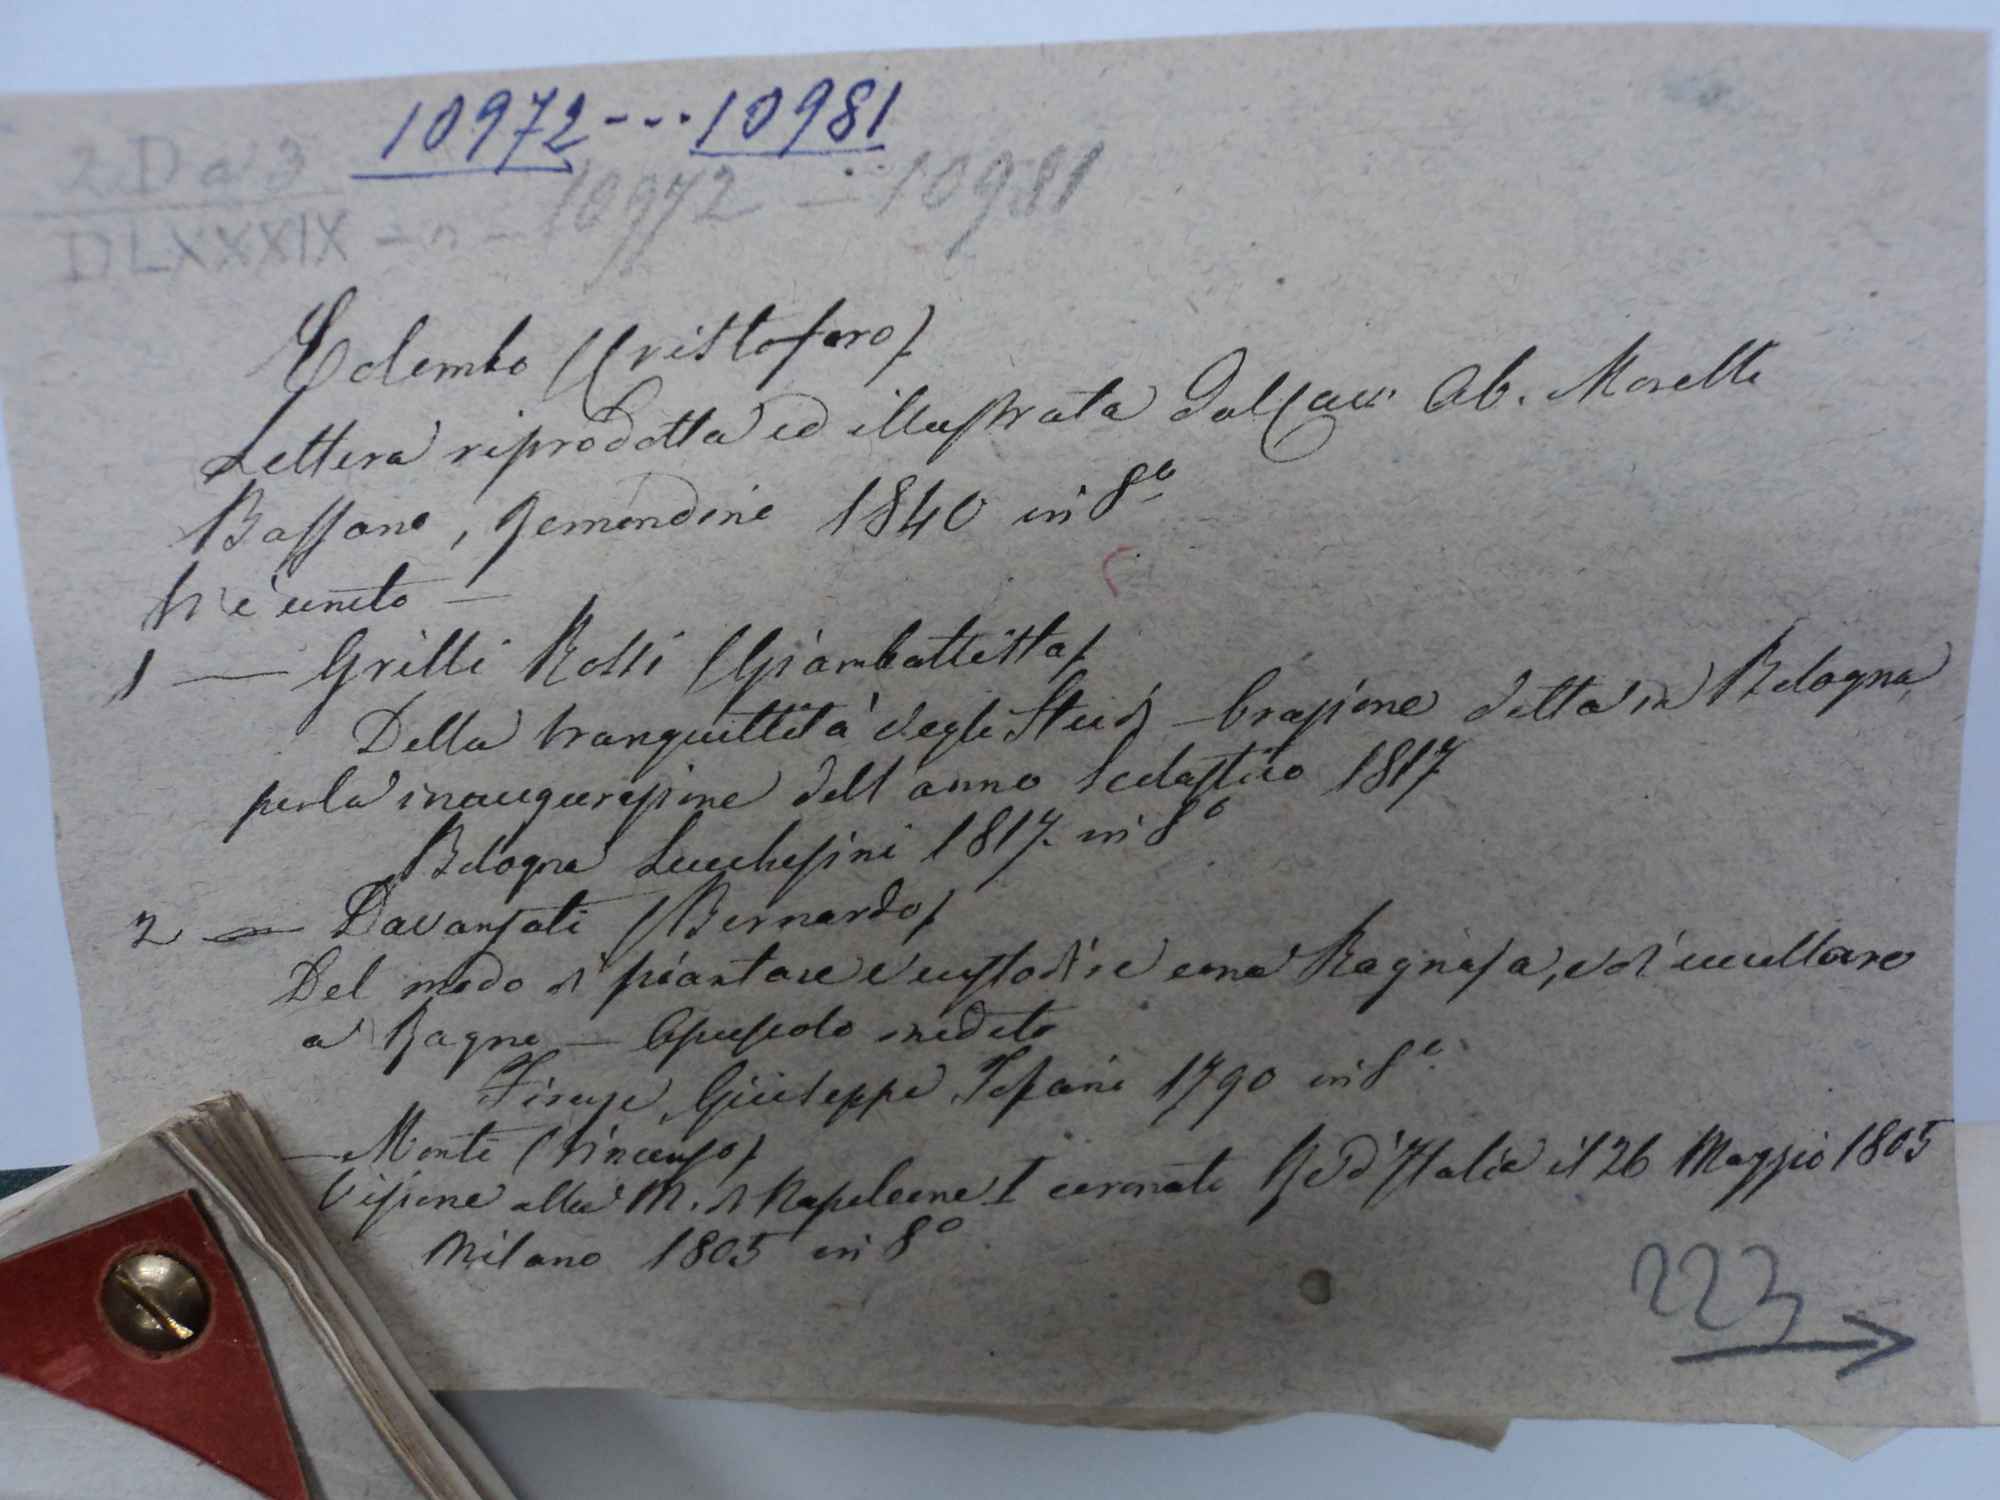 10972---10981
2 D a 3
DLXXXIX - n - 10972 - 10981
Colombo (Cristoforo)
Lettera riprodotta ed illustrata dal Cav. Ab. Morelli
Bassano, Remondini 1810 in 8º
Vi è unito —
1 — Grilli Rossi (Giambattista)
Della tranquillità degli Studj - Orazione detta in Bologna
per la inaugurazione dell anno Scolastico 1817
Bologna Lucchesini 1817. in 8º
2 — Davanzati (Bernardo)
Del modo di piantare e custodire una Ragnaja, e di uccellare
a Ragne — Opuscolo inedito
Firenze, Giuseppe Tofani 1790 in 8º
— Monti (Vincenzo)
Visione alla M. di Napoleone I coronato Re d'Italia il 26 Maggio 1805
Milano 1805 in 8º
223